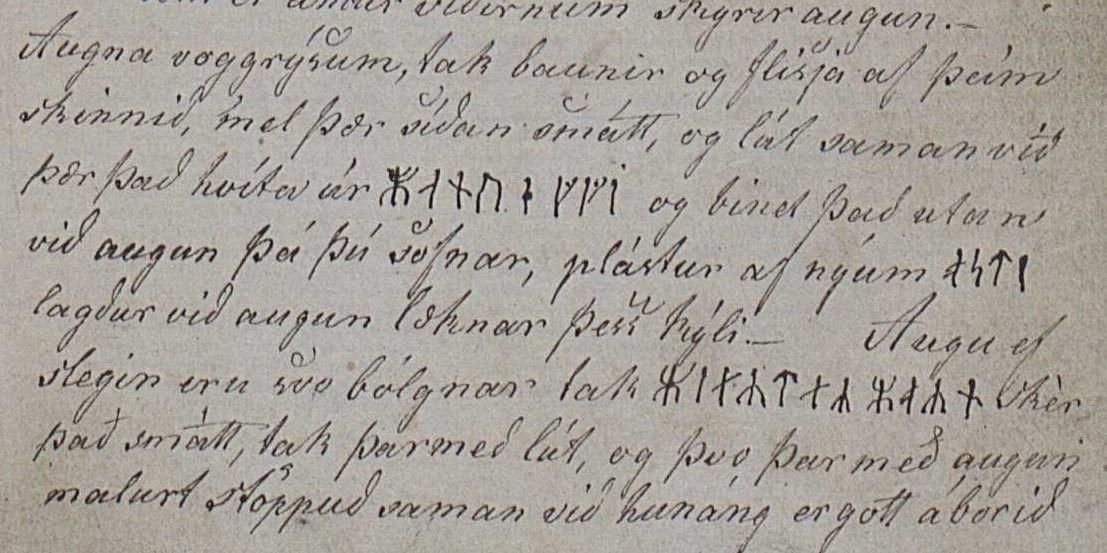 er undir viðirnum skýrir augun.–
Augna voggrýsum, tak baunir og flisja af þeim
skinnið, mel þær síðan smátt, og lát saman við
þær það hvíta úr ᛯᛆᚾᚢᛂᚵᚵᛁ og bind það utan
við augun þá þú sofnar, plástur af nýúm ᚮᛋᛏᛁ
lagður við augun læknar þess kýli.– Augu ef
slegin eru svo bólgnar tak ᛯᛁᛅᛦᛏᛅᛦ ᛯᚮᛦᚾ skèr
það smátt, tak þarmeð lút, og þvo þar með augun
malurt stöppuð saman við hunáng er gott áborið